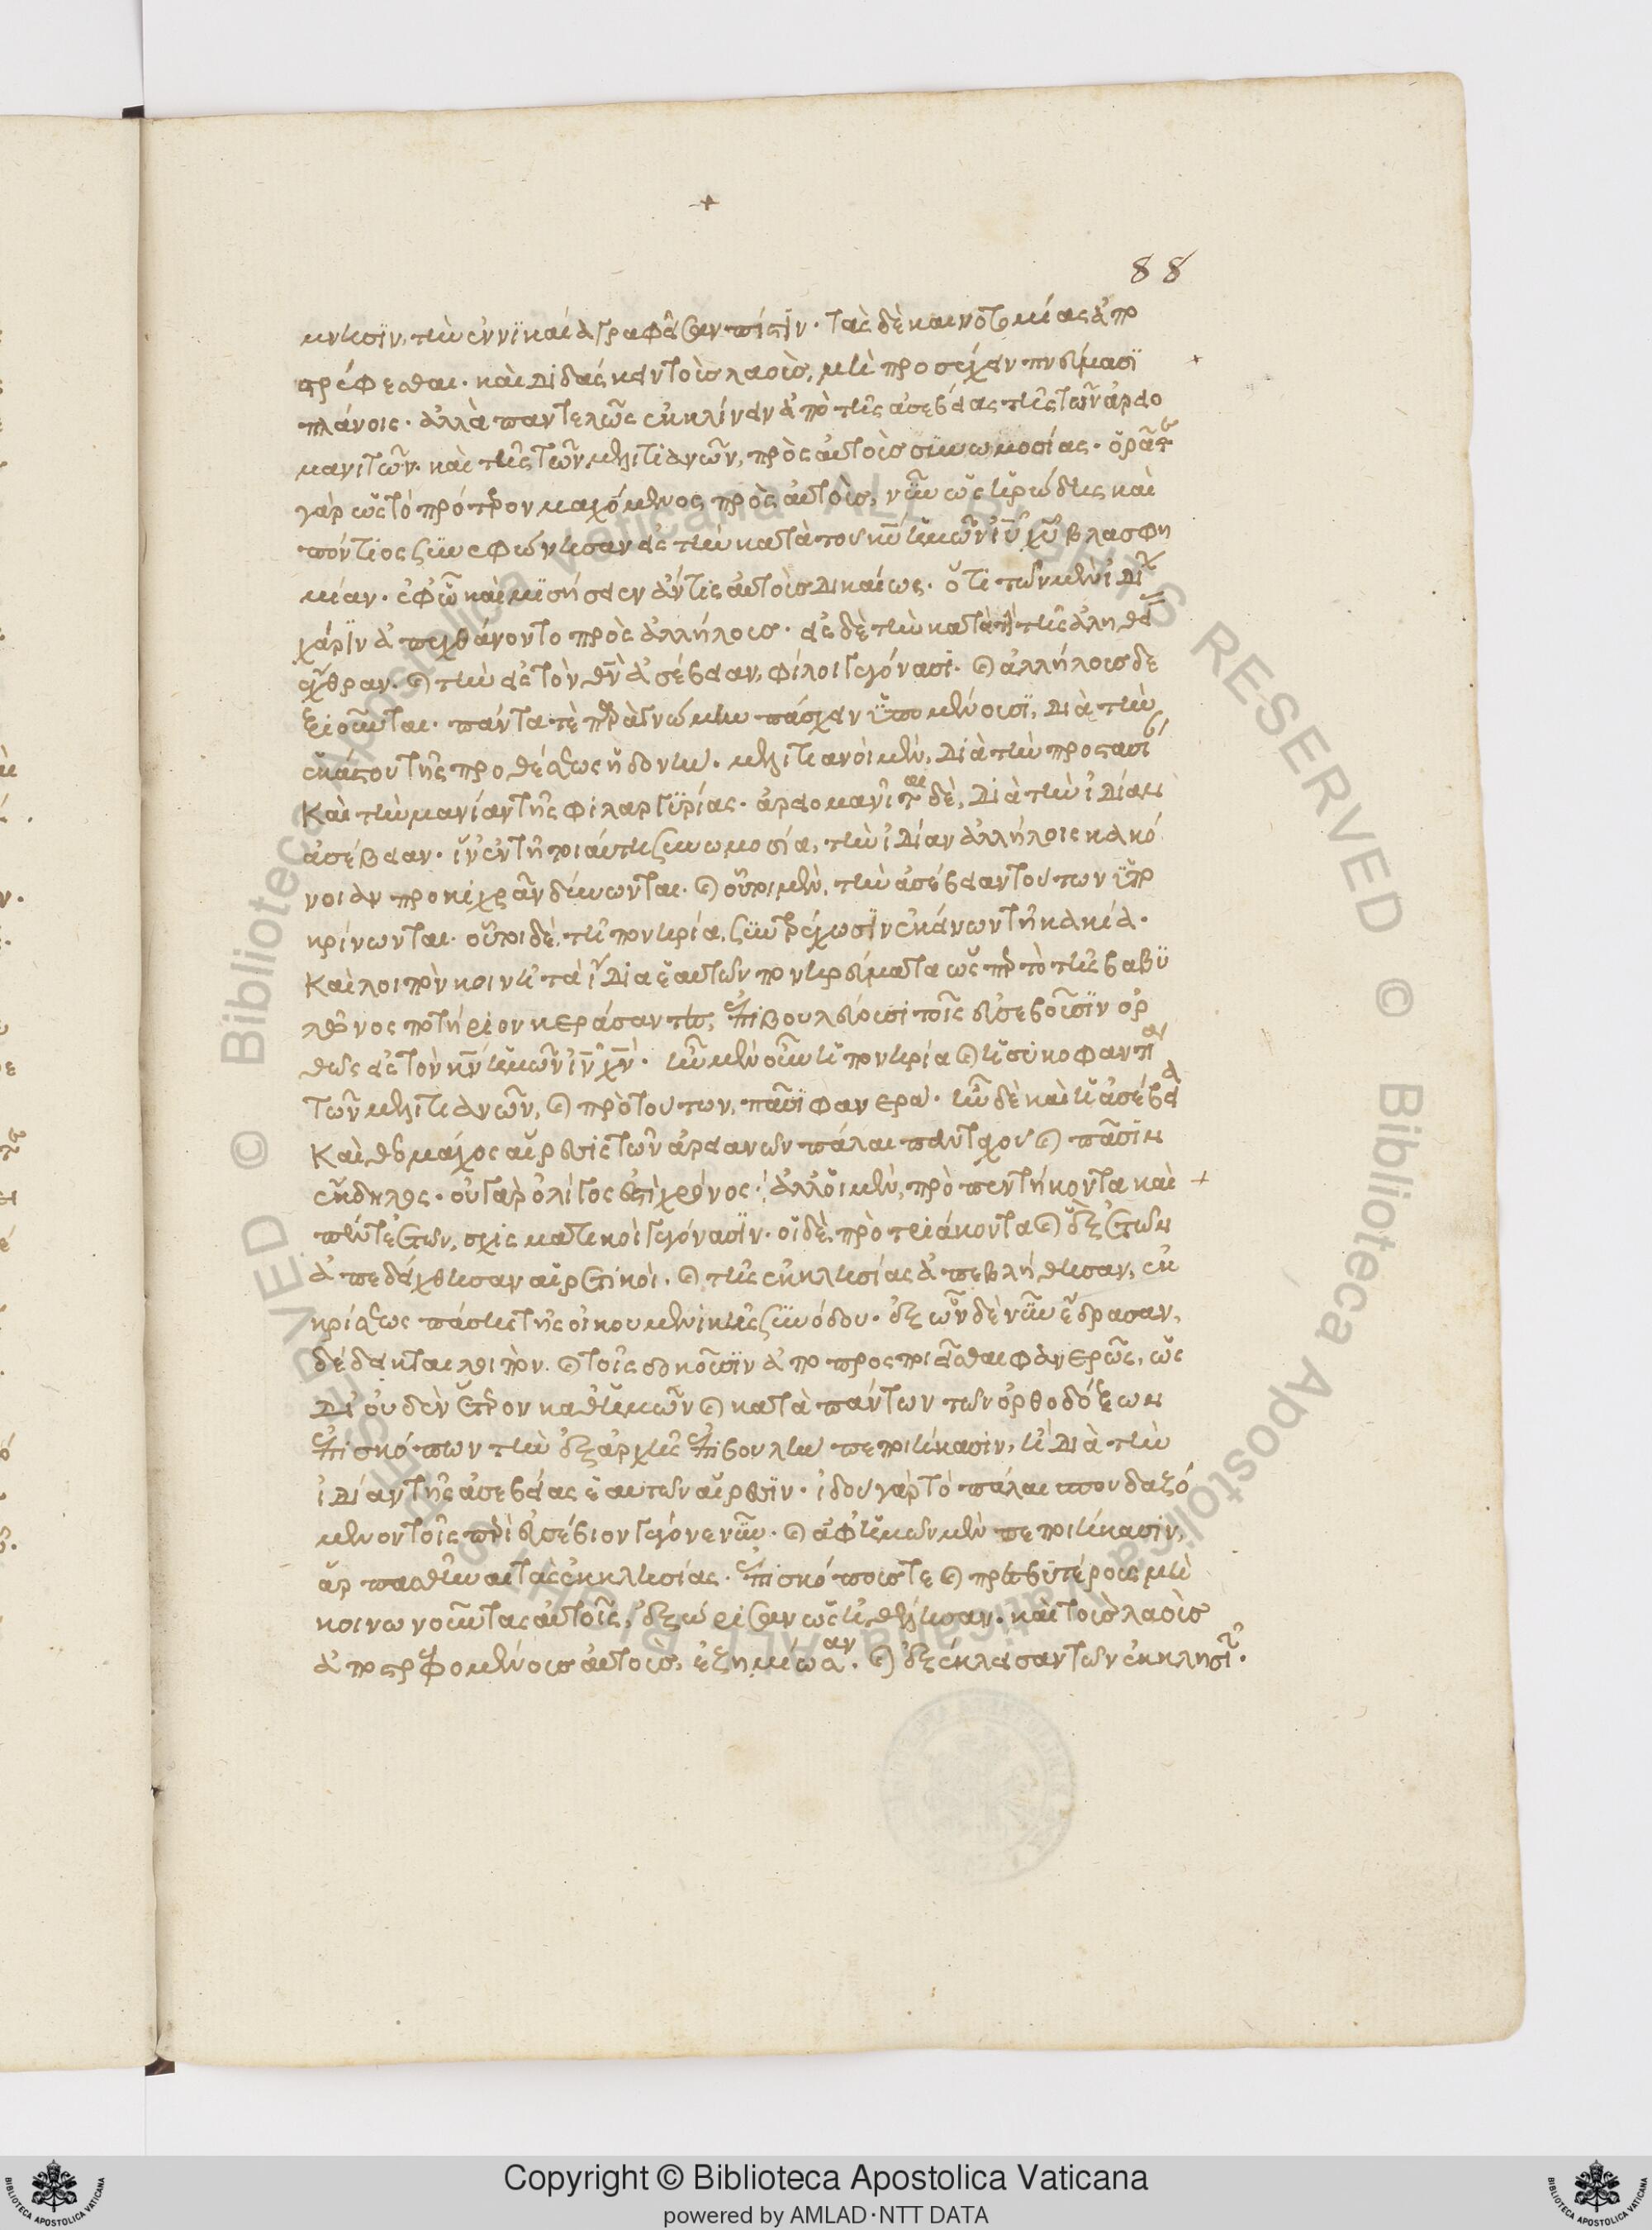 88
μνησϊν, τὴν ἐν νϊκαία γραφεῖσαν πίστϊν· τὰς δὲ καινοτομίας ἀπο
στρέφεσθαι· καὶ διδάσκειν τοὺς λαοὺς, μὴ προσέχειν πνεύμασϊ
πλάνοις· ἀλλὰ παντελῶς ἐκκλίνειν ἀπὸ τῆς ἀσεβείας τῆς τῶν ἀρειο
μανιτῶν· καὶ τῆς τῶν μελιτιανῶν, πρὸς αὐτοὺς συνωμοσίας· ὁρᾶτε
γὰρ ὡς τὸ πρότερον μαχόμενος πρὸς αὐτοὺς, νῦν ὡς ἡρώδης καὶ
πόντιος συνεφώνησαν εἰς τὴν κατὰ του κ̅υ̅ ἡμῶν ι̅υ̅ χ̅υ̅ βλασφη
μίαν· ἐφῶ καὶ μϊσήσειεν ἄντις αὐτοὺς δικαίως· ὅτι των μὲν ἰδι
χάρϊν ἀπειχθάνοντο πρὸς ἀλλήλους· εἰς δὲ τὴν κατὰ τῆς ἀληθεί
ἔχθραν· καὶ τὴν εἰς τὸν θ̅ν̅ ἀσέβειαν, φίλοι γεγόνασϊ· καὶ ἀλλήλους δε
ξιοῦνται· πάντα τὲ παρὰ γνώμην πάσχειν ὑπομένουσϊ, διὰ τὴν
ἑκάστου τῆς προθέσεως ἡδονήν· μελιτιανοὶ μὲν, διὰ τὴν προστασί
Καὶ τὴν μανίαν τῆς φιλαργϋρίας· ἀρειομανῖται δὲ, διὰ τὴν ἰδίαν
ἀσέβειαν· ἵν' ἐν τῆ τοιαύτη συνωμοσία, τὴν ἰδίαν ἀλλήλοις κακό
νοιαν προκιχρᾶν δύνωνται· καὶ οὗτοι μὲν, τὴν ἀσέβειαν τούτων ὑπο
κρίνωνται· οὗτοι δὲ, τῆ πονηρία, συντρέχωσϊν ἐκείνων τῆ κακία·
Καὶ λοιπὸν κοινῆ τὰ ἴδια ἑαυτων πονηρεύματα ὡς περ τὸ τῆς βαβϋ
λῶνος ποτήριον κεράσαντες, ἐπιβουλεύουσϊ τοῖς εὐσεβοῦσϊν ὀρ
θως εἰς τὸν κ̅ν̅ ἡμῶν ι̅ν̅ χ̅ν̅· ἦν μὲν οὖν ἡ πονηρία καὶ ἡ συκοφαντία
τῶν μελιτιανῶν, καὶ πρὸ τούτων, πᾶσϊ φανερά· ἦν δὲ καὶ ἡ ἀσέβεια
Καὶ θεομάχος αἵρεσις τῶν ἀρειανων πάλαι πανταχου καὶ πᾶσιν
ἔκδηλος· οὐ γὰρ ὀλίγος ἐστὶ χρόνος· ἀλλ' οἱ μὲν, πρὸ πεντήκοντα καὶ
πέντε ἐτων, σχισματικοὶ γεγόνασϊν· οἱ δὲ, πρὸ τριάκοντα καὶ ἓξ ἐτων
ἀπεδείχθησαν αἱρετικοὶ. καὶ τῆς ἐκκλησίας ἀπεβλήθησαν, ἐκ
κρίσεως πάσης τῆς οἰκουμενικῆς συνόδου· ἐξ ὧν δὲ νῦν ἔδρασαν,
δέδεικται λοιπὸν. καὶ τοῖς δοκοῦσϊν ἀποπροσποιεῖσθαι φανερῶς, ὡς
δι' οὐδὲν ἕτερον καθ' ἡμῶν καὶ κατὰ πάντων των ὀρθοδόξων
ἐπισκόπων τὴν ἐξαρχῆς ἐπιβουλὴν πεποιήκασιν, ἢ διὰ τὴν
ἰδίαν τῆς ἀσεβείας ἑαυτων αἵρεσϊν· ἰδου γὰρ τὸ πάλαι σπουδαζό
μενον τοῖς περὶ εὐσέβιον γέγονε νῦν· καὶ ἀφ' ἡμων μὲν πεποιήκασϊν,
ἁρπασθῆναι τὰς ἐκκλησίας· ἐπισκόπους τε καὶ πρεσβϋτέρους μὴ
κοινωνοῦντας αὐτοῖς, ἐξώρισαν ὡς ἠθέλησαν· καὶ τοὺς λαοὺς
ἀποστρεφομένους αὐτοὺς, ἐζημίωσαν. καὶ ἐξέκλεισαν των ἐκκλησι·
Copyright © Biblioteca Apostolica Vaticana
powered by AMLAD·NTT DATA